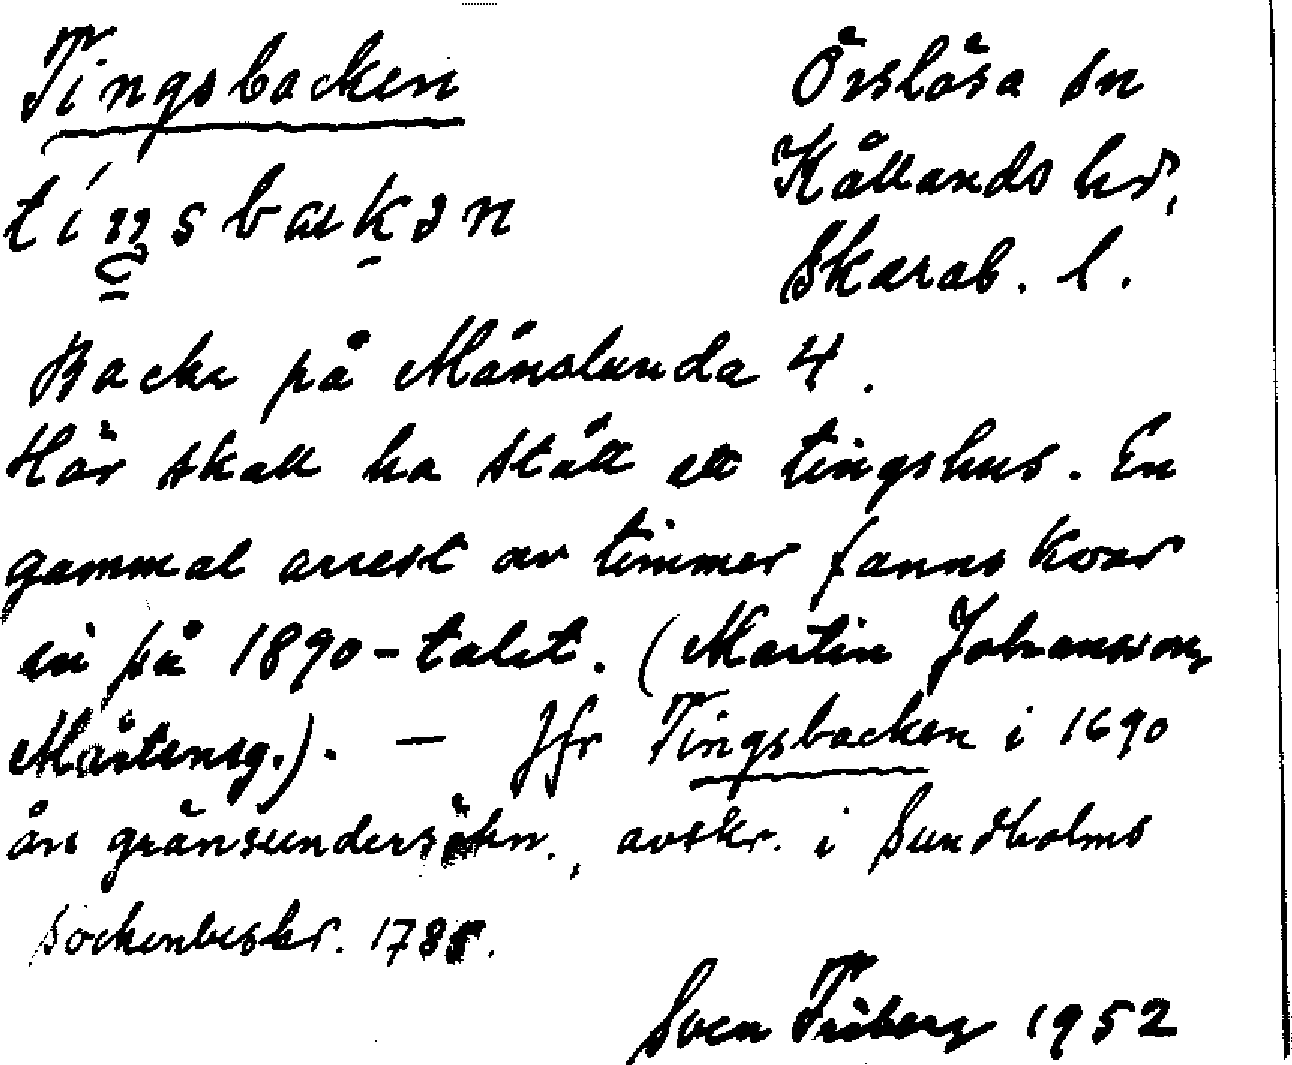 Tingsbacken
Örslösa sn
tíŋsbakən
Kållands hd,
Skarab. l.
Backe på Månslunda 4.
Här skall ha stått ett tingshus. En
gammal arrest av timmer fanns kvar
in på 1890-talet. (Martin Johansson,
Mårtensg.). — Jfr Tingsbacken i 1690
års gränsundersökn., avskr. i Sundholms
sockenbeskr. 1785.
Sven Friberg 1952